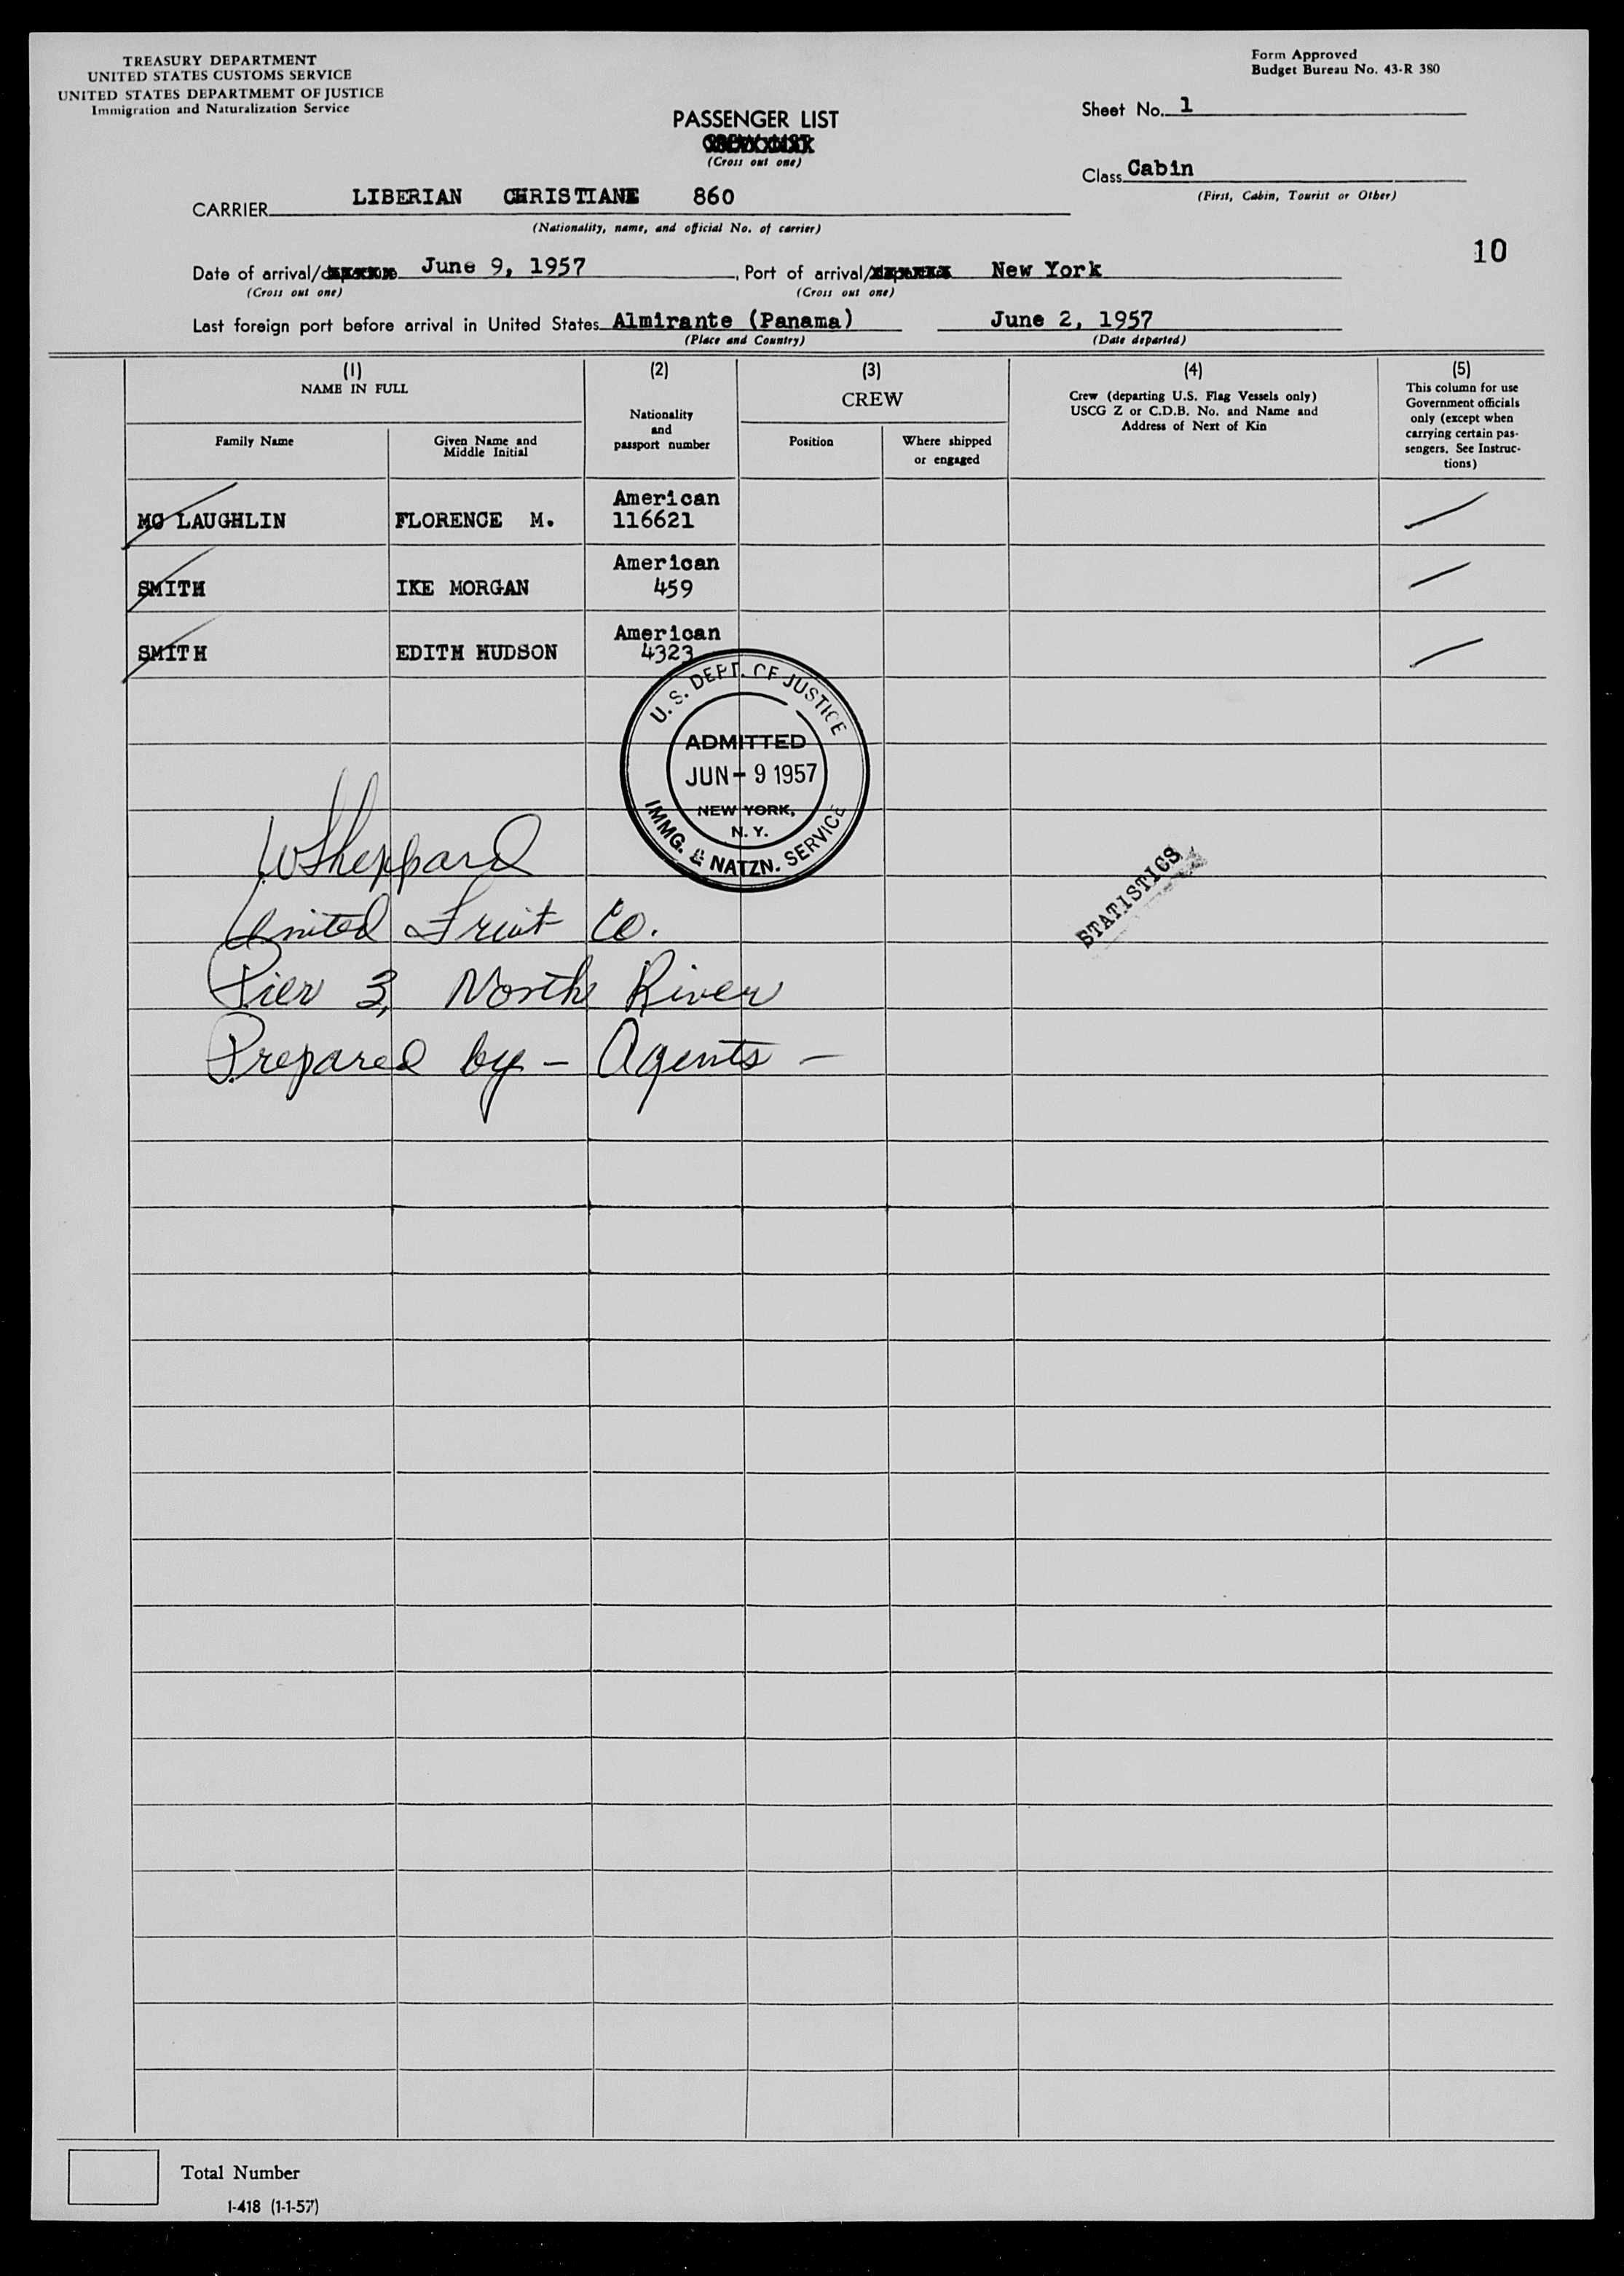 TREASURY DEPARTMENT
UNITED STATES CUSTOMS SERVICE
UNITED STATES DEPARTMEMT OF JUSTICE
Immigration and Naturalization Service
Form Approved
Budget Bureau No. 43-R 380
PASSENGER LIST
(Cross out one)
Sheet No. 1
Class Cabin
(First, Cabin, Tourist or Other)
CARRIER LIBERIAN CHRISTIANE 860
(Nationality, name, and official No. of carrier)
10
Date of arrival/ June 9, 1957, Port of arrival/ New York
(Cross out one) (Cross out one)
Last foreign port before arrival in United States Almirante (Panama) June 2, 1957
(Place and Country) (Date departed)
(1) (2) (3) (4) (5)
NAME IN FULL
Family Name
Given Name and
Middle Initial
Nationality
and
passport number
CREW
Position
Where shipped
or engaged
Crew (departing U.S. Flag Vessels only)
USCG Z or C.D.B. No. and Name and
Address of Next of Kin
This column for use
Government officials
only (except when
carrying certain pas-
sengers. See Instruc-
tions)
American
MC LAUGHLIN FLORENCE M. 116621
American
SMITH IKE MORGAN 459
American
SMITH EDITH HUDSON 4323
U. S. DEPT. OF JUSTICE
ADMITTED
JUN - 9 1957
NEW YORK,
N. Y.
IMMG. & NATZN. SERVICE
STATISTICS
W Sheppard
United Fruit Co.
Pier 3, North River
Prepared by - Agents -
Total Number
I-418 (1-1-57)